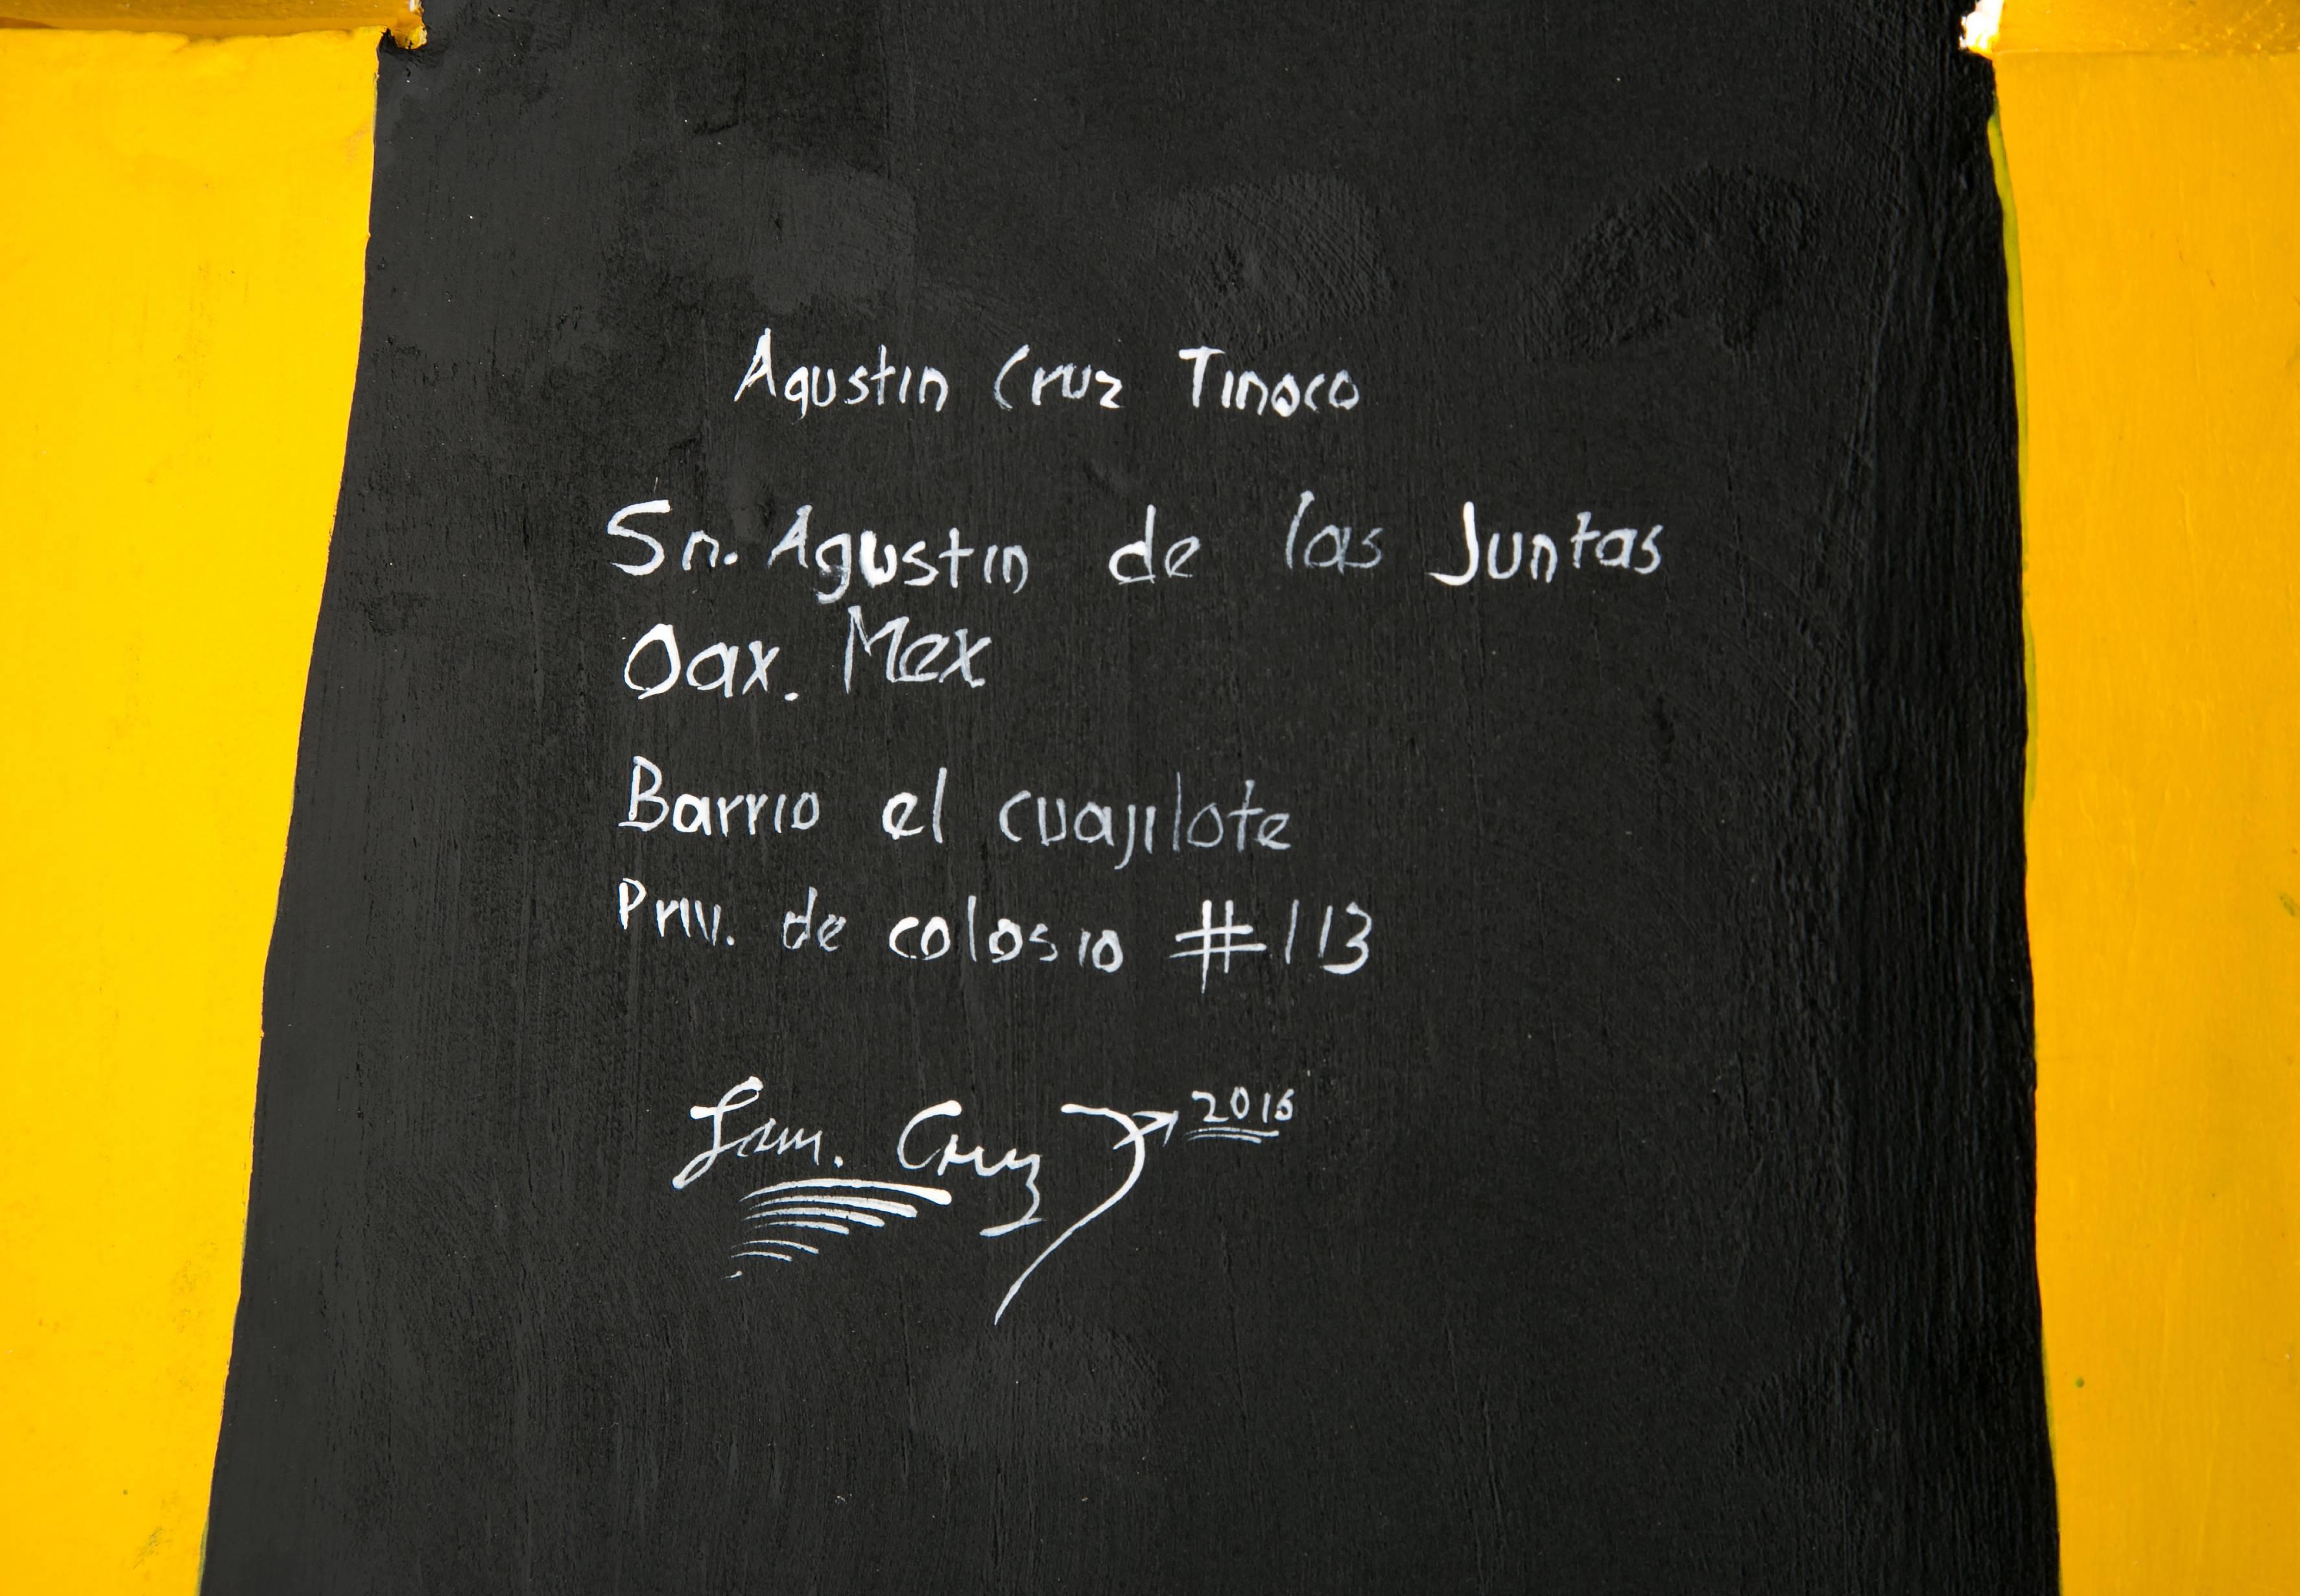 Agustin Cruz Tinoco
Sn. Agustin de las Juntas
Oax. Mex
Barrio el cuajilote
Priv. de colosio #113
Fam. Cruz
2016